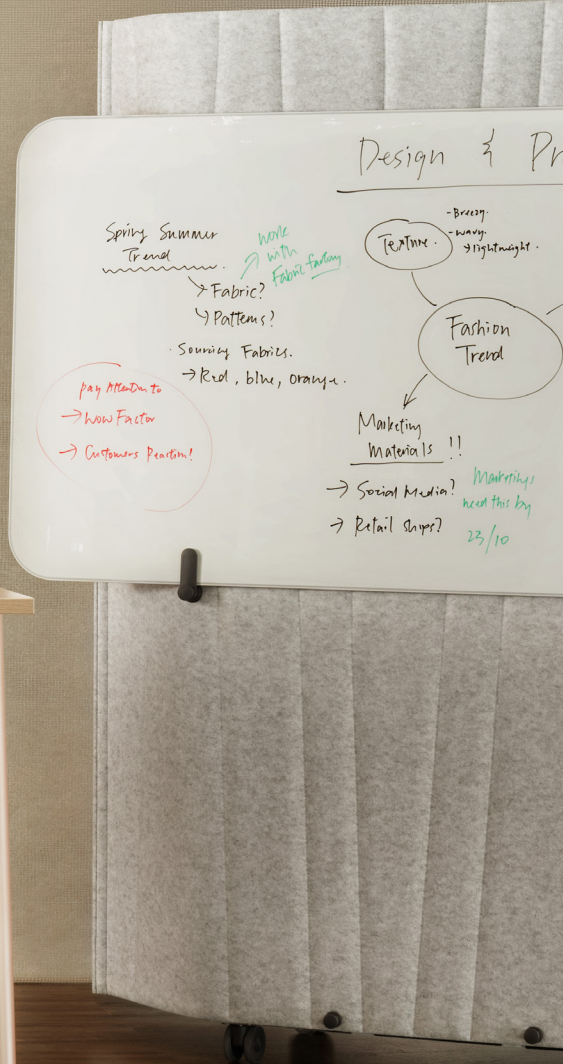 Design & Pr
Spring Summer
Trend
→ Fabric?
→ Patterns?
work
with
Fabric factory
· Sourcing Fabrics.
→ Red, blue, orange.
pay Attention to
→ wow Factor
→ Customers Reaction!
Texture.
- Breezy.
- wavy.
→ lightweight.
Fashion
Trend
Marketing
Materials !!
→ Social Media?
→ Retail ships?
Marketings
need this by
23/10